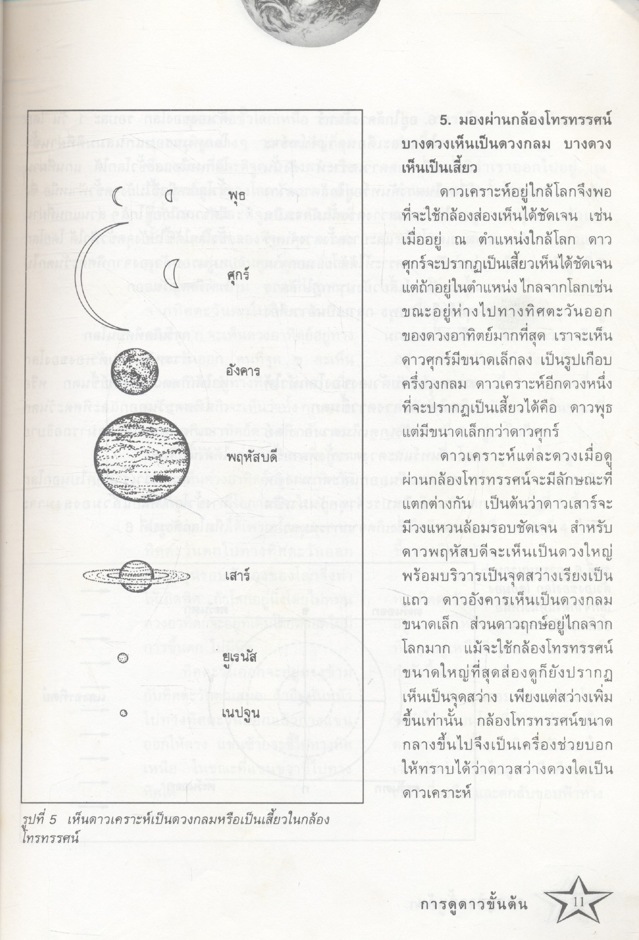 พุธ
ศุกร์
อังคาร
พฤหัสบดี
เสาร์
ยูเรนัส
เนปจูน
รูปที่ 5 เห็นดาวเคราะห์เป็นดวงกลมหรือเป็นเสี้ยวในกล้อง
โทรทรรศน์
5. มองผ่านกล้องโทรทรรศน์
บางดวงเห็นเป็นดวงกลม บางดวง
เห็นเป็นเสี้ยว
ดาวเคราะห์อยู่ใกล้โลกจึงพอ
ที่จะใช้กล้องส่องเห็นได้ชัดเจน เช่น
เมื่ออยู่ ณ ตำแหน่งใกล้โลก ดาว
ศุกร์จะปรากฏเป็นเสี้ยวเห็นได้ชัดเจน
แต่ถ้าอยู่ในตำแหน่งไกลจากโลกเช่น
ขณะอยู่ห่างไปทางทิศตะวันออก
ของดวงอาทิตย์มากที่สุด เราจะเห็น
ดาวศุกร์มีขนาดเล็กลง เป็นรูปเกือบ
ครึ่งวงกลม ดาวเคราะห์อีกดวงหนึ่ง
ที่จะปรากฏเป็นเสี้ยวได้คือ ดาวพุธ
แต่มีขนาดเล็กกว่าดาวศุกร์
ดาวเคราะห์แต่ละดวงเมื่อดู
ผ่านกล้องโทรทรรศน์จะมีลักษณะที่
แตกต่างกัน เป็นต้นว่าดาวเสาร์จะ
มีวงแหวนล้อมรอบชัดเจน สำหรับ
ดาวพฤหัสบดีจะเห็นเป็นดวงใหญ่
พร้อมบริวารเป็นจุดสว่างเรียงเป็น
แถว ดาวอังคารเห็นเป็นดวงกลม
ขนาดเล็ก ส่วนดาวฤกษ์อยู่ไกลจาก
โลกมาก แม้จะใช้กล้องโทรทรรศน์
ขนาดใหญ่ที่สุดส่องดูก็ยังปรากฏ
เห็นเป็นจุดสว่าง เพียงแต่สว่างเพิ่ม
ขึ้นเท่านั้น กล้องโทรทรรศน์ขนาด
กลางขึ้นไปจึงเป็นเครื่องช่วยบอก
ให้ทราบได้ว่าดาวสว่างดวงใดเป็น
ดาวเคราะห์
การดูดาวขั้นต้น 11